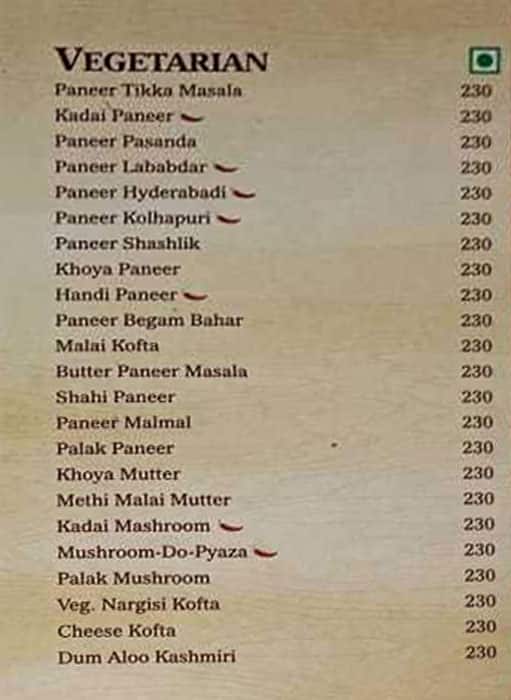 VEGETARIAN
Paneer Tikka Masala 230
Kadai Paneer 230
Paneer Pasanda 230
Paneer Lababdar 230
Paneer Hyderabadi 230
Paneer Kolhapuri 230
Paneer Shashlik 230
Khoya Paneer 230
Handi Paneer 230
Paneer Begam Bahar 230
Malai Kofta 230
Butter Paneer Masala 230
Shahi Paneer 230
Paneer Malmal 230
Palak Paneer 230
Khoya Mutter 230
Methi Malai Mutter 230
Kadai Mashroom 230
Mushroom-Do-Pyaza 230
Palak Mushroom 230
Veg. Nargisi Kofta 230
Cheese Kofta 230
Dum Aloo Kashmiri 230